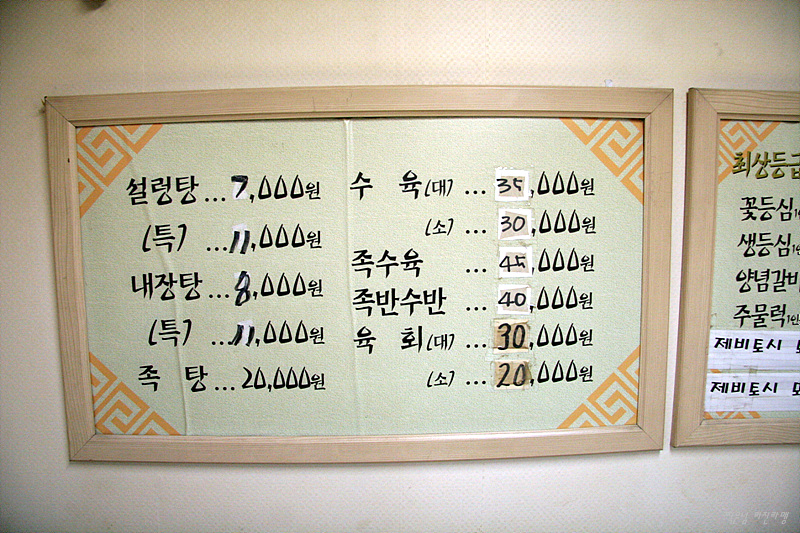 설렁탕 ... 7,000원
(특) ... 11,000원
내장탕 ... 8,000원
(특) ... 11,000원
족 탕 ... 20,000원
수 육(대) ... 35,000원
(소) ... 30,000원
족수육 ... 45,000원
족반수반 ... 40,000원
육 회(대) ... 30,000원
(소) ... 20,000원
최상등급
꽃등심
생등심
양념갈비
주물럭
제비토시
제비토시